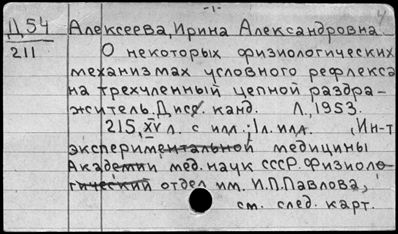 -1-
Д54 Алексеева, Ирина Александровна
211
О некоторых физиологических
механизмах условного рефлекса
на трехчленный цепной раздра-
житель. Дис. канд. Л., 1953.
215, XV л. с илл.; 1л. илл. , Ин-т
экспериментальной медицины
Академии мед. наук СССР. Физиоло-
гический отдел им. И.П.Павлова,
см. след. карт.